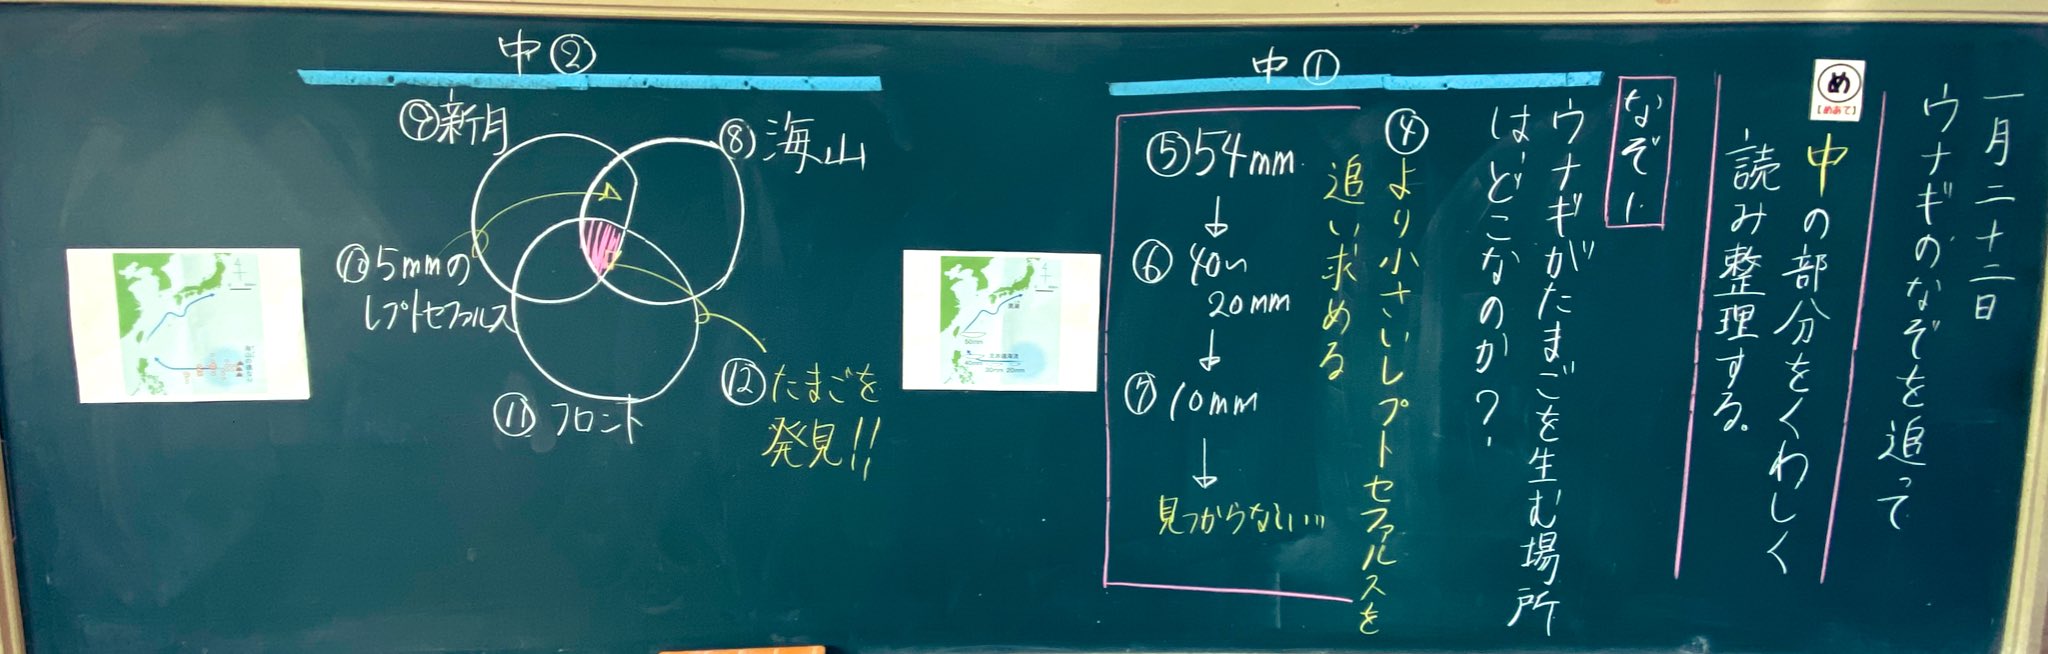 一月二十二日
ウナギのなぞを追って
め
【めあて】
中の部分をくわしく
読み整理する。
なぞ1
ウナギがたまごを生む場所
はどこなのか?
中①
④より小さいレプトセファルスを
追い求める
⑤54mm
↓
⑥40mm
20mm
↓
⑦10mm
↓
見つからない…
50mm
40mm
30mm 20mm
中②
⑧海山
⑨新月
⑩5mmの
レプトセファルス
⑪フロント
⑫たまごを
発見!!